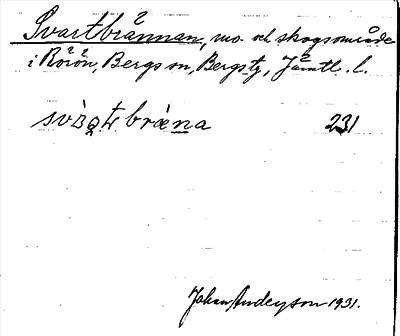 Svartbrännan, mo och skogsområde
i Rörön, Bergs sn, Bergs tg, Jämtl. l.
bræna 231
Johan Anderson 1931.